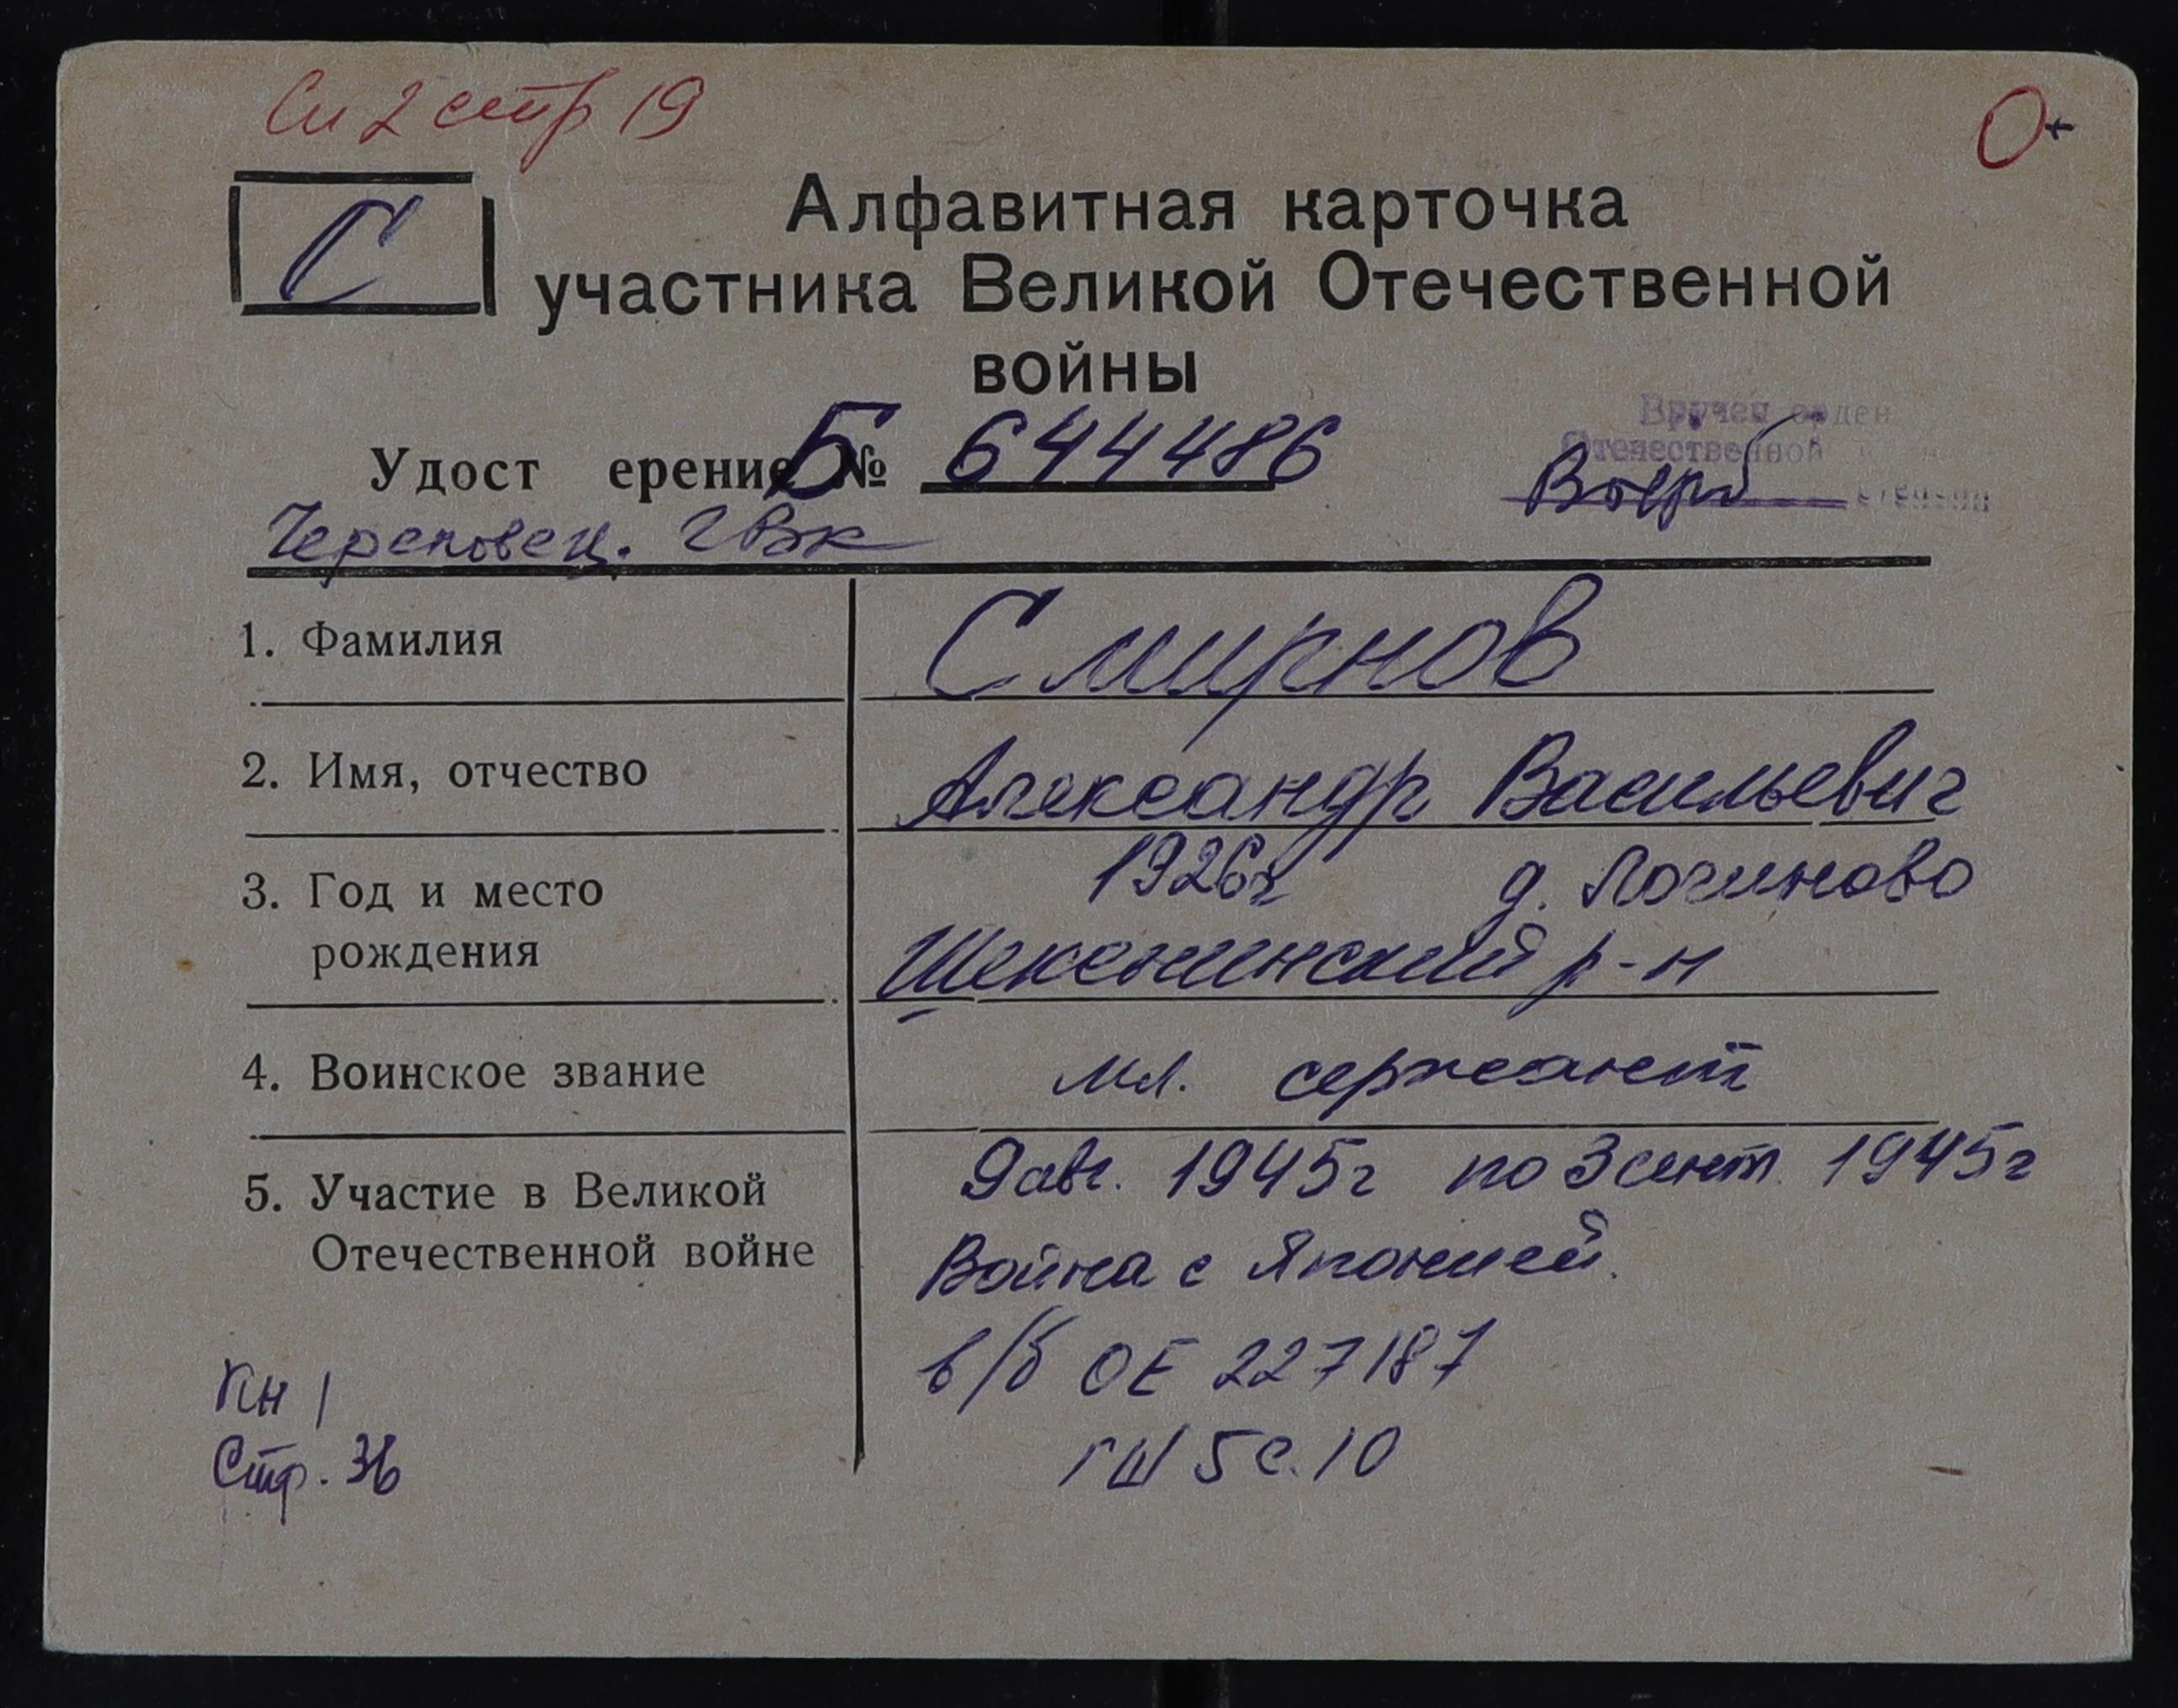 Сп 2 стр 19
О+
С
Алфавитная карточка
участника Великой Отечественной
войны
Вручен орден
Отечественной
степени
Удост ерение Б № 644486
Череповец. ГВК
1. Фамилия Смирнов
2. Имя, отчество Александр Васильевич
3. Год и место рождения 1926г д. Логиново
Шекснинский р-н
4. Воинское звание мл. сержант
5. Участие в Великой Отечественной войне 9 авг. 1945г по 3 сент. 1945г
Война с Японией.
в/б ОЕ 227187
ГШ 5 с. 10
Кн 1
Стр. 36